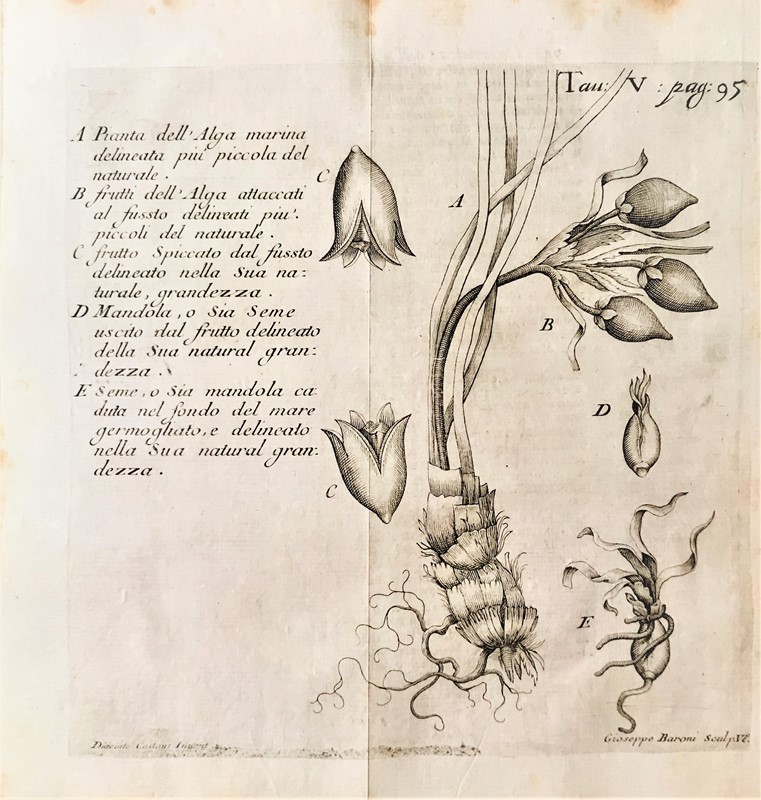 Tau: V : pag: 95
A Pianta dell'Alga marina
delineata piú piccola del
naturale .
B frutti dell'Alga attaccati
al fussto delineati piu'.
piccoli del naturale .
C frutto Spiccato dal fussto
delineato nella Sua na:
turale, grandezza .
D Mandola, o Sia Seme
uscito dal frutto delineato
della Sua natural gran:
dezza .
E Seme, o Sia mandola ca:
duta nel fondo del mare
germogliato, e delineato
nella Sua natural gran:
dezza .
A
B
C
C
D
E
Gioseppe Baroni Sculp. VE.